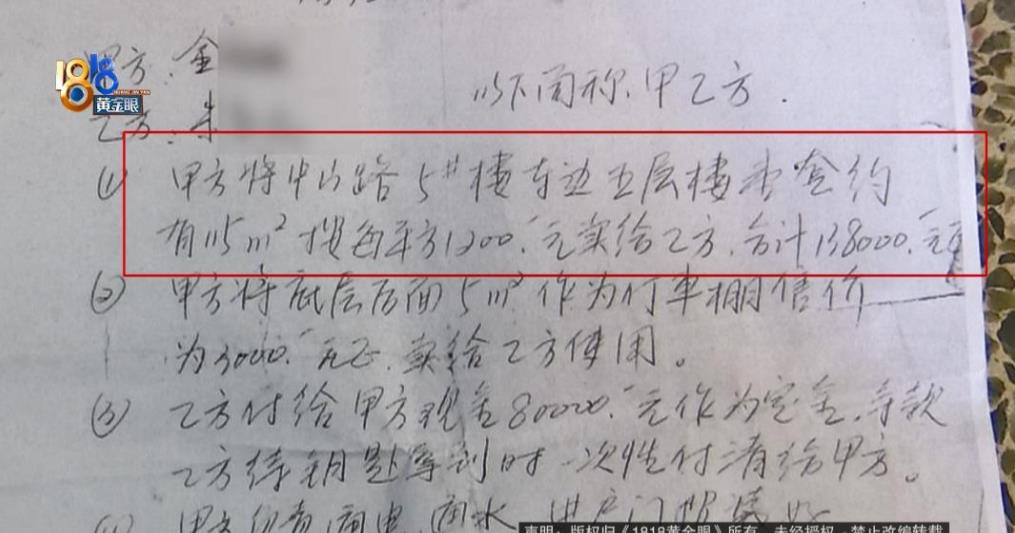 甲方:金
1818
黄金眼
以下简称.甲乙方.
乙方:朱
(1) 甲方将中山路5#楼东边五层楼壹套约
有115m²按每平方1200.元卖给乙方.合计138000.元
(2) 甲方将底层后面5m²作为行车棚售价
为3000.元正.卖给乙方使用。
(3) 乙方付给甲方现金80000.元作为定金.余款
乙方待钥匙拿到时一次性付清给甲方。
甲方负责通电.通水.进户门
声明:版权归《1818黄金眼》所有,未经授权,禁止改编转载